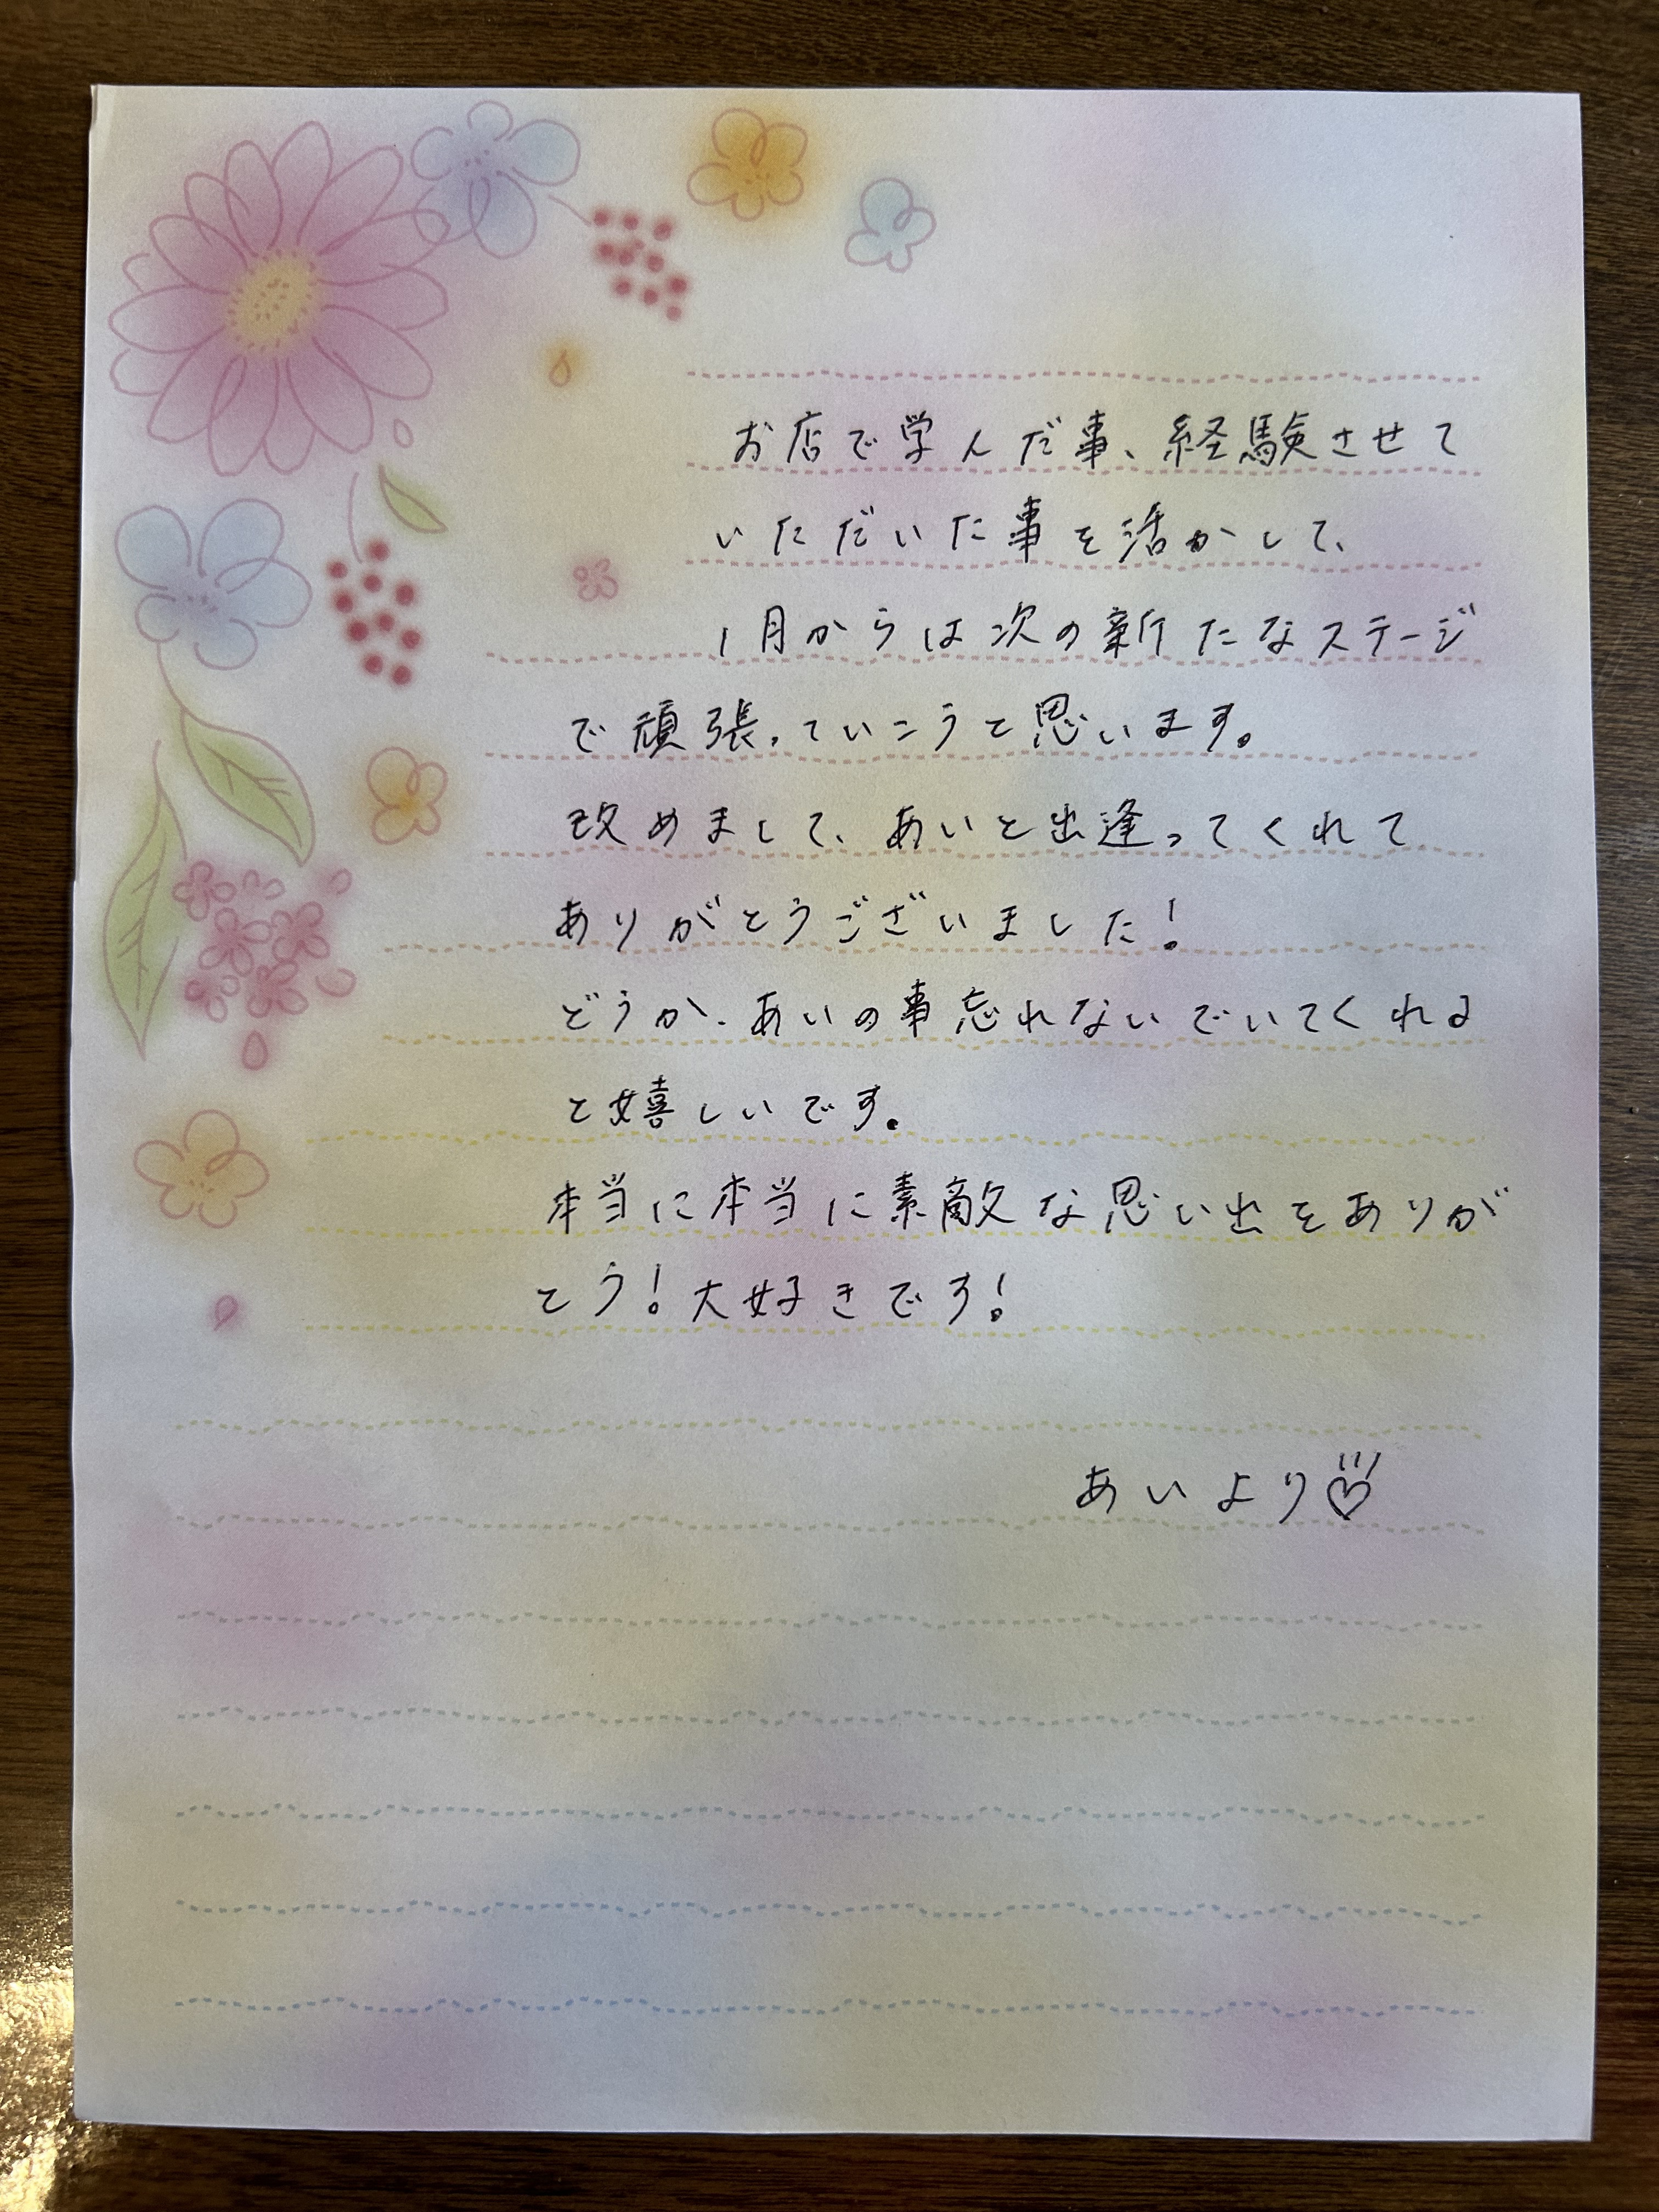 お店で学んだ事、経験させて
いただいた事を活かして、
1月からは次の新たなステージ
で頑張っていこうと思います。
改めまして、あいと出逢ってくれて
ありがとうございました!
どうか、あいの事忘れないでいてくれる
と嬉しいです。
本当に本当に素敵な思い出をありが
とう!大好きです!
あいより♡